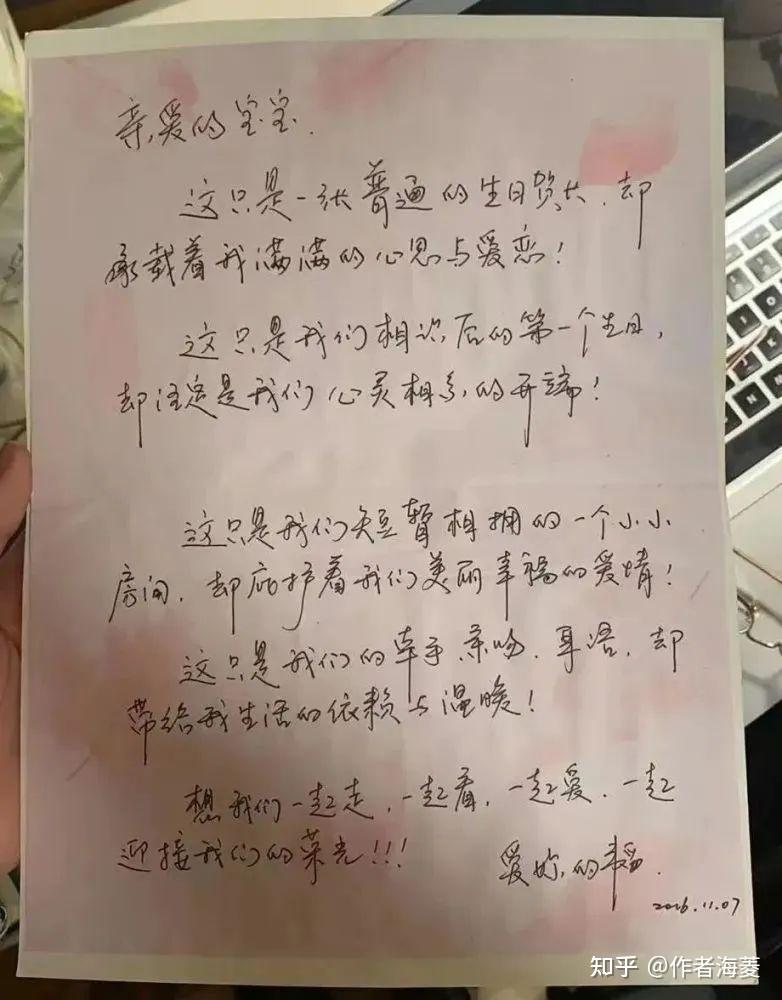 亲爱的宝宝.
这只是一张普通的生日贺卡.却
承载着我满满的心思与爱恋!
这只是我们相识后的第一个生日,
却注定是我们心灵相系的开端!
这只是我们短暂相拥的一个小小
房间.却庇护着我们美丽幸福的爱情!
这只是我们的牵手.亲吻.耳语.却
带给我生活的依赖与温暖!
想我们一起走.一起看.一起爱.一起
迎接我们的荣光!!!
爱妳的
2016.11.07
知乎 @作者海菱